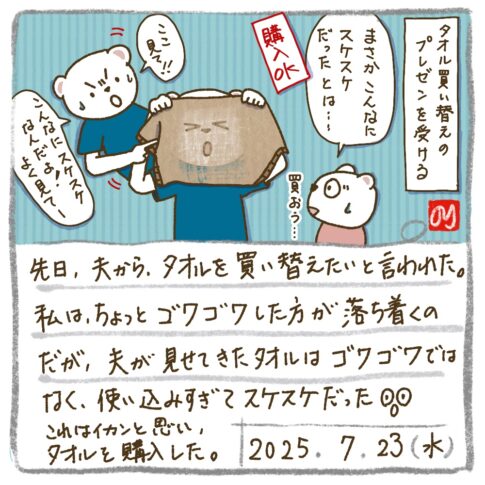 タオル買い替えの
プレゼンを受ける
まさかこんなに
スケスケ
だったとは…
購入OK
ここ
見て!!
こんなにスケスケ
なんだよ!
よく見てー
買おう…
先日,夫から,タオルを買い替えたいと言われた。
私は,ちょっとゴワゴワした方が落ち着くの
だが,夫が見せてきたタオルはゴワゴワでは
なく,使い込みすぎてスケスケだった
これはイカンと思い,
タオルを購入した。
2025.7.23(水)